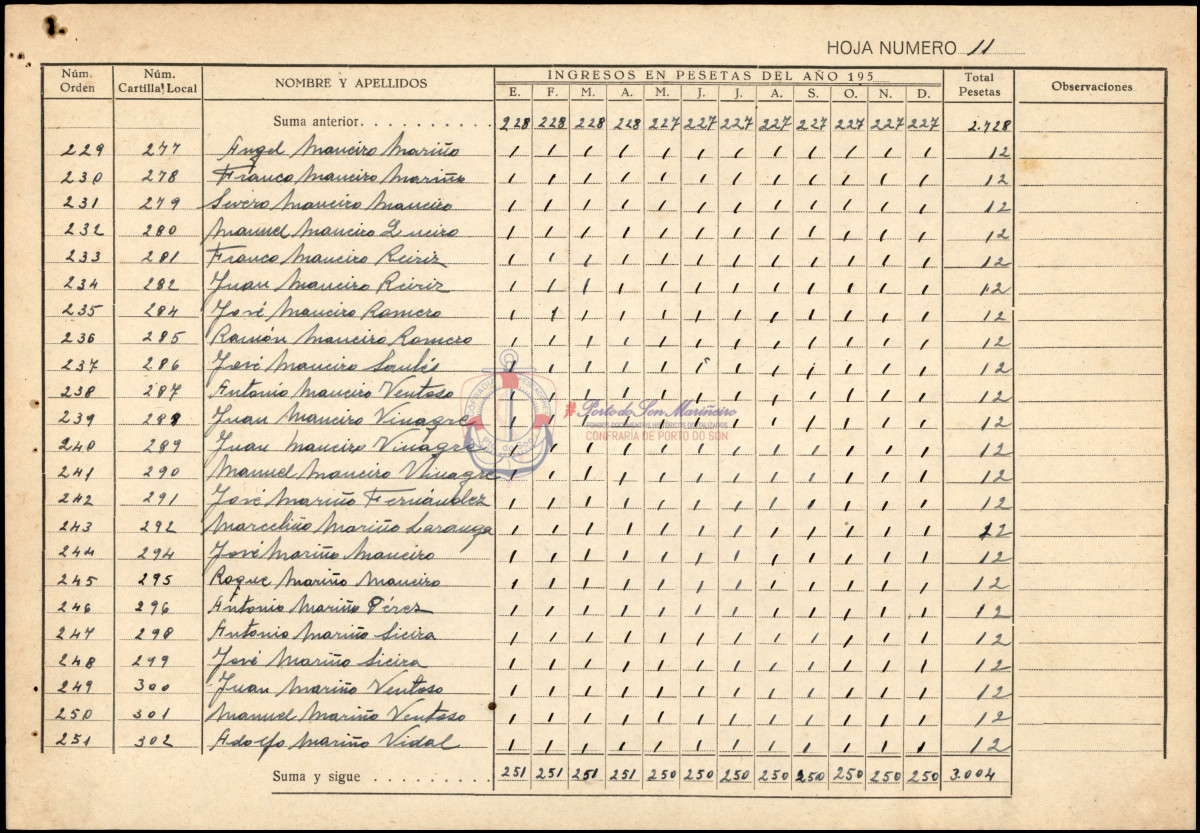 HOJA NUMERO 11
Núm. Orden Núm. Cartilla Local NOMBRE Y APELLIDOS INGRESOS EN PESETAS DEL AÑO 195 Total Pesetas Observaciones
E. F. M. A. M. J. J. A. S. O. N. D.
Suma anterior. 228 228 228 228 227 227 227 227 227 227 227 227 2.728
229 277 Angel Maneiro Mariño 1 1 1 1 1 1 1 1 1 1 1 1 12
230 278 Franco Maneiro Mariño 1 1 1 1 1 1 1 1 1 1 1 1 12
231 279 Severo Maneiro Maneiro 1 1 1 1 1 1 1 1 1 1 1 1 12
232 280 Manuel Maneiro 1 1 1 1 1 1 1 1 1 1 1 1 12
233 281 Franco Maneiro Reiriz 1 1 1 1 1 1 1 1 1 1 1 1 12
234 282 Juan Maneiro Reiriz 1 1 1 1 1 1 1 1 1 1 1 1 12
235 284 José Maneiro Romero 1 1 1 1 1 1 1 1 1 1 1 1 12
236 285 Ramón Maneiro Romero 1 1 1 1 1 1 1 1 1 1 1 1 12
237 286 José Maneiro 1 1 1 1 1 1 1 1 1 1 1 1 12
238 287 Antonio Maneiro Ventoso 1 1 1 1 1 1 1 1 1 1 1 1 12
239 288 Juan Maneiro Vinagre 1 1 1 1 1 1 1 1 1 1 1 1 12
240 289 Juan Maneiro Vinagre 1 1 1 1 1 1 1 1 1 1 1 1 12
241 290 Manuel Maneiro Vinagre 1 1 1 1 1 1 1 1 1 1 1 1 12
242 291 José Mariño Fernández 1 1 1 1 1 1 1 1 1 1 1 1 12
243 292 Marcelino Mariño Laranga 1 1 1 1 1 1 1 1 1 1 1 1 12
244 294 José Mariño Maneiro 1 1 1 1 1 1 1 1 1 1 1 1 12
245 295 Roque Mariño Maneiro 1 1 1 1 1 1 1 1 1 1 1 1 12
246 296 Antonio Mariño Pérez 1 1 1 1 1 1 1 1 1 1 1 1 12
247 298 Antonio Mariño Sieira 1 1 1 1 1 1 1 1 1 1 1 1 12
248 299 José Mariño Sieira 1 1 1 1 1 1 1 1 1 1 1 1 12
249 300 Juan Mariño Ventoso 1 1 1 1 1 1 1 1 1 1 1 1 12
250 301 Manuel Mariño Ventoso 1 1 1 1 1 1 1 1 1 1 1 1 12
251 302 Adolfo Mariño Vidal 1 1 1 1 1 1 1 1 1 1 1 1 12
Suma y sigue 251 251 251 251 250 250 250 250 250 250 250 250 3.004
#Porto do Son Mariñeiro
FONDOS DOCUMENTAIS HISTÓRICOS DIXITALIZADOS
CONFRARÍA DE PORTO DO SON